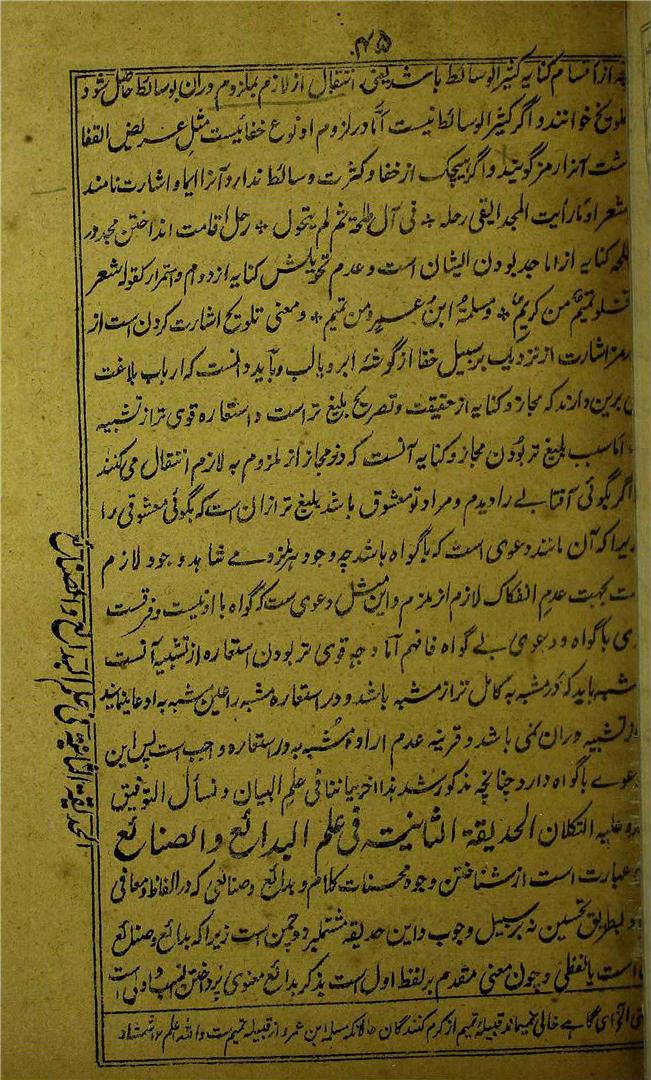 ۴۵
از اقسام کنایه کثیر الوسائط باشد یعنی انتقال از لازم بملزوم دران بوسائط حاصل شود
تلویح خوانند و اگر کثیر الوسائط نیست اما در لزوم او نوع خفائیست مثل عریض القفا
ست آنرا رمز گویند و اگر هیچک از خفا و کثرت وسائط ندارد آنرا ایما و اشارت نامند
شعر او ما رأیت المجد القی رحله + فی آل طلحة ثم لم یتحول + رحل اقامت انداختن مجد در
طلحه کنایه از اماجد بودن ایشان است و عدم تحویلش کنایه از دوام و استمرار کقوله شعر
تمیم من کریم + ومسلمة ابن عمرو من تمیم + و معنی تلویح اشارت کردن است از
رمز اشارت از نزدیک بر سبیل خفا از گوشه ابرو یا لب و باید دانست که ارباب بلاغت
برین دارند که مجاز و کنایه از حقیقت و تصریح بلیغ تر است و استعاره قوی تر از تشبیه
اما سبب بلیغ تر بودن مجاز و کنایه آنست که در مجاز از ملزوم به لازم انتقال می کنند
اگر بگوئی آفتابے را دیدم و مراد تو معشوق باشد بلیغ تر ازان است که بگوئی معشوقی را
زیرا که آن مانند دعوی است که باگواه باشد چه وجود هر ملزومے شاهد وجود لازم
ست بجهت عدم انفکاک لازم از ملزم و این مثل دعوی ست که گواه با اونیست و فرقست
باگواه و دعوی بے گواه فافهم اما وجه قوی تر بودن استعاره از تشبیه آنست
مشبه باید که در مشبه به کامل تر از مشبه باشد و در استعاره مشبه را عین مشبه به ادعا نمایند
تشبیه دران نمی باشد و قرینه عدم اراده مشبه به در استعاره واجب است پس این
دعوے باگواه دارد چنانچه مذکور شد هذا آخر بیاننا فی علم البیان و نسأل التوفیق
علیه التکلان الحدیقة الثانیة فی علم البدائع والصنائع
عبارت است از شناختن وجوه محسنات کلام و بدائع و صنائعی که در الفاظ و معانی
بطریق تحسین نه بر سبیل وجوب و این حدیقه مشتملبر دو چمن است زیرا که بدائع و صنائع
است یا لفظی و چون معنی مقدم بر لفظ اول است بذکر بدائع معنوی پرداختن انسب و اولی است
ای گاہے خالی قبیلهٔ تمیم از کرم کنندگان حالانکه مسلمه ابن عمرو از قبیلهٔ تمیم ست و الله اعلم
الحدیقة الثانیة فی علم البدائع والصنائع